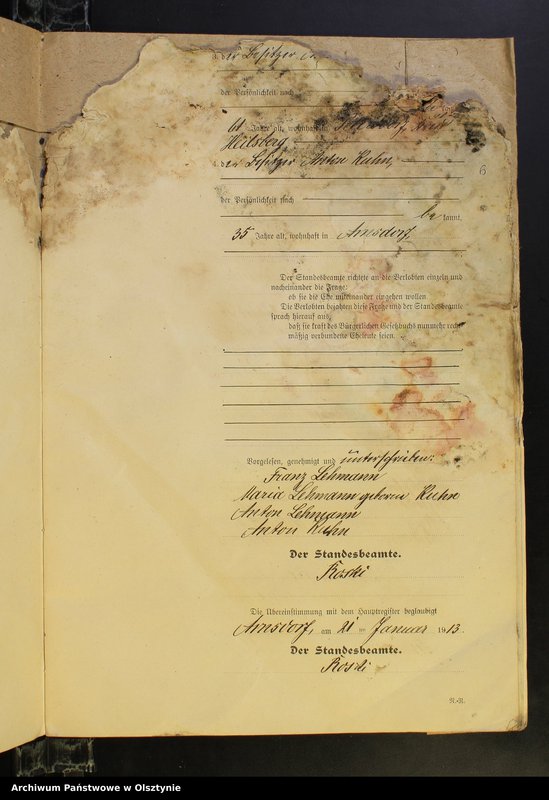 3. der Besitzer
der Persönlichkeit nach
61 Jahre alt, wohnhaft in
Heilsberg
4. der Besitzer Anton Kuhn,
6
der Persönlichkeit nach
be kannt,
35 Jahre alt, wohnhaft in Arnsdorf.
Der Standesbeamte richtete an die Verlobten einzeln und
nacheinander die Frage:
ob sie die Ehe miteinander eingehen wollen.
Die Verlobten bejahten diese Frage und der Standesbeamte
sprach hierauf aus,
daß sie kraft des Bürgerlichen Gesetzbuchs nunmehr recht-
mäßig verbundene Eheleute seien.
Vorgelesen, genehmigt und unterschrieben:
Franz Lehmann
Maria Lehmann geboren Kuhn
Anton Lehmann
Anton Kuhn
Der Standesbeamte.
Roski
Die Übereinstimmung mit dem Hauptregister beglaubigt
Arnsdorf, am 21 ten Januar 1913.
Der Standesbeamte.
Roski
Archiwum Państwowe w Olsztynie